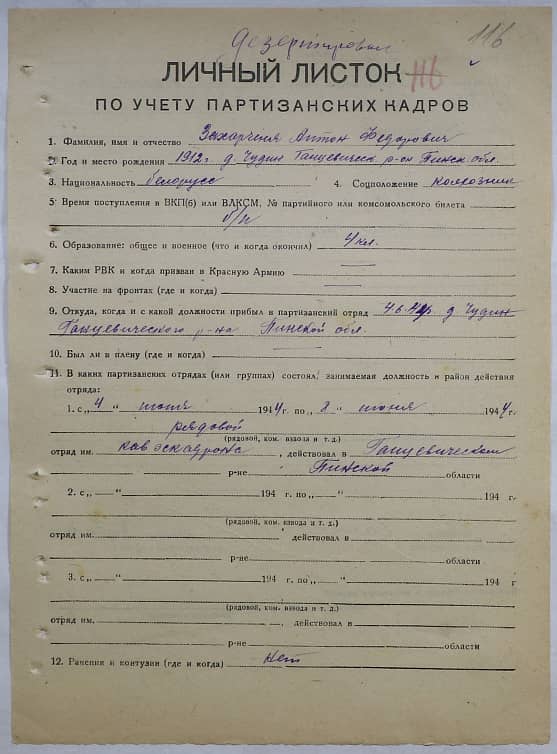 дезертировал
116
ЛИЧНЫЙ ЛИСТОК 116
ПО УЧЕТУ ПАРТИЗАНСКИХ КАДРОВ
1. Фамилия, имя и отчество Захарченя Антон Федорович
2. Год и место рождения 1912 г. д. Чудин Ганцевическ р-он Пинск обл.
3. Национальность белорусс 4. Соцположение колхозник
5. Время поступления в ВКП(б) или ВЛКСМ, № партийного или комсомольского билета
б/п
6. Образование: общее и военное (что и когда окончил) 4 кл.
7. Каким РВК и когда призван в Красную Армию —
8. Участие на фронтах (где и когда) —
9. Откуда, когда и с какой должности прибыл в партизанский отряд 4.6.44г. д. Чудин
Ганцевического р-на Пинской обл.
10. Был ли в плену (где и когда) —
11. В каких партизанских отрядах (или группах) состоял, занимаемая должность и район действия
отряда:
1. с „ 4 “ июня 1944 г. по „ 8 “ июня 1944 г.
рядовой
(рядовой, ком. взвода и т. д.)
отряд им. кав эскадрона, действовал в Ганцевическом
р-не Пинской области
2. с „ — “ 194 г. по „ — “ 194 г.
(рядовой, ком. взвода и т. д.)
отряд им. действовал в
р-не области
3. с „ — “ 194 г. по „ — “ 194 г
(рядовой, ком. взвода и т. д.)
отряд им. , действовал в
р-не области
12. Ранения и контузии (где и когда) нет